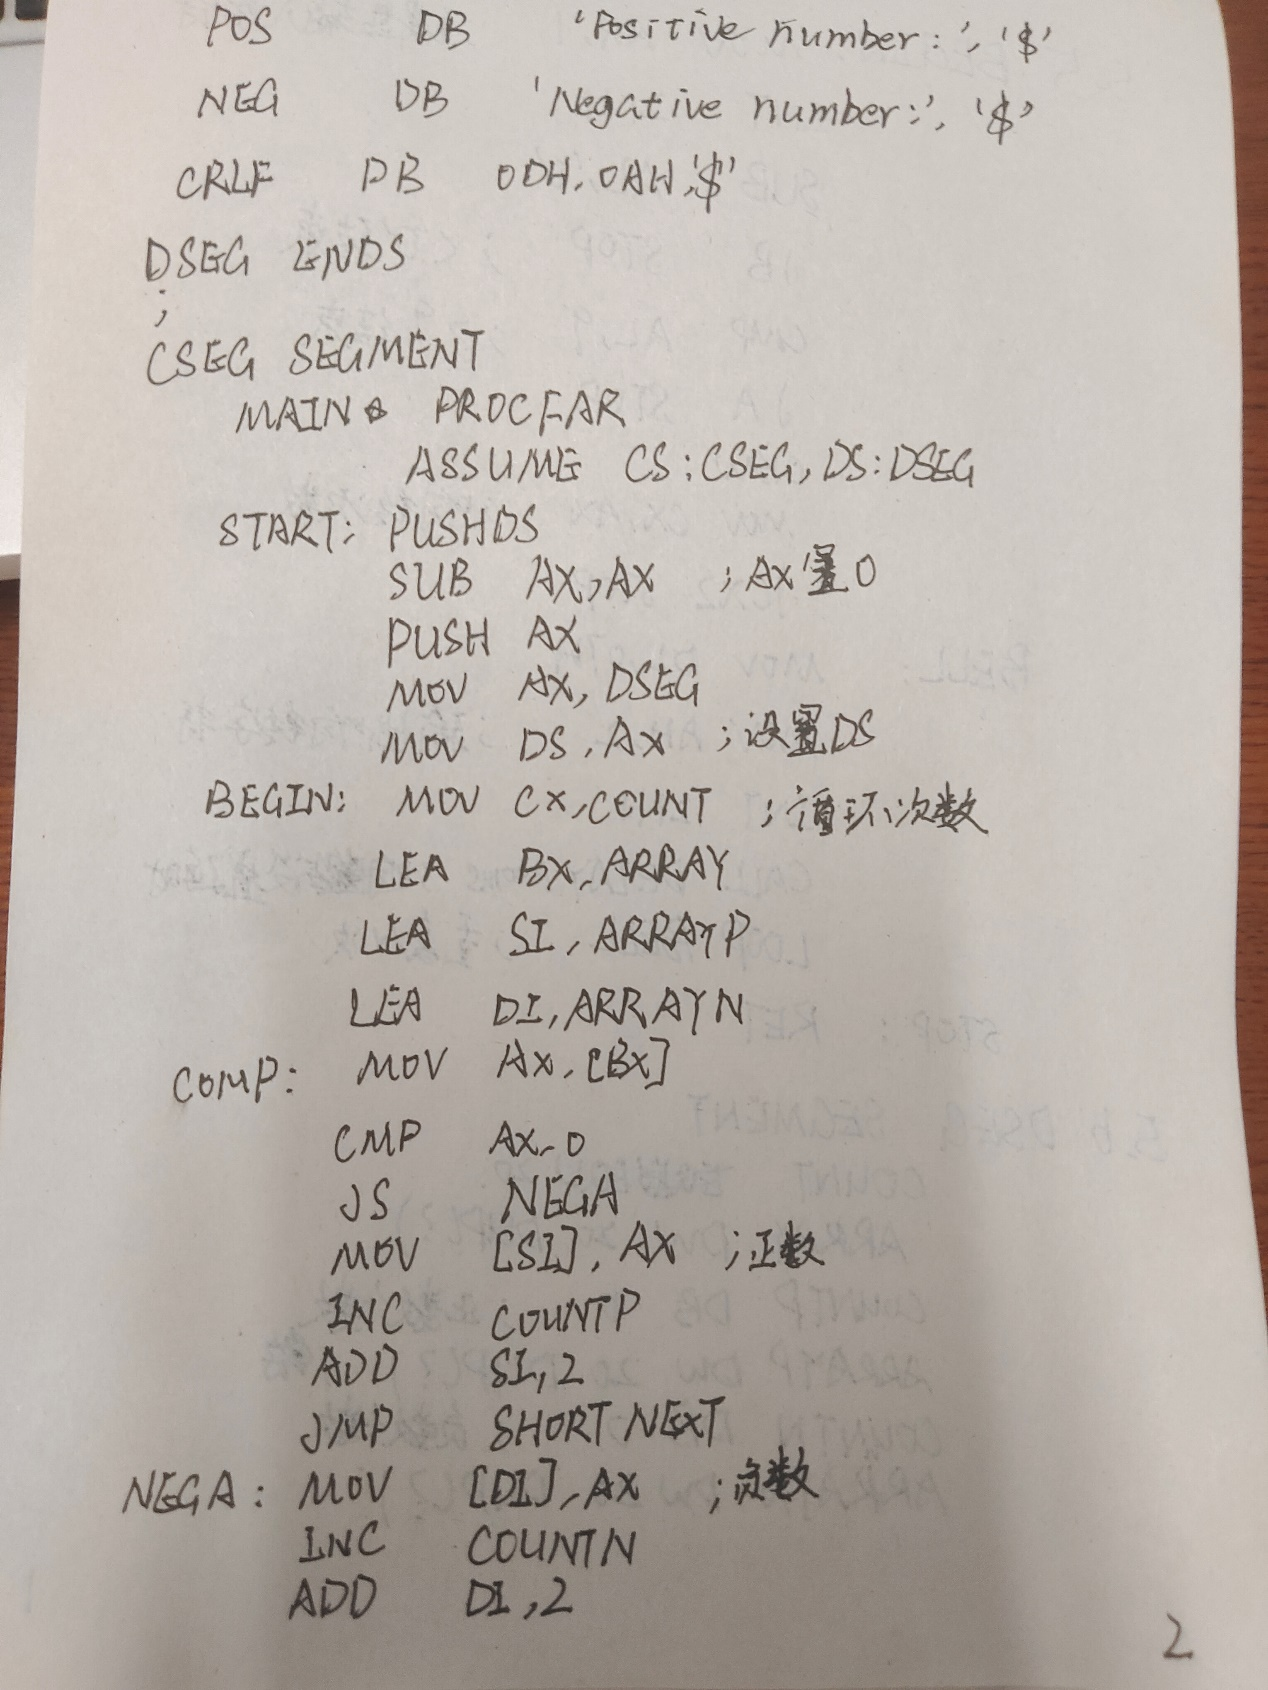 POS DB 'Positive number:','$'
NEG DB 'Negative number:','$'
CRLF DB 0DH,0AH,'$'
DSEG ENDS
;
CSEG SEGMENT
MAIN PROC FAR
ASSUME CS:CSEG,DS:DSEG
START: PUSH DS
SUB AX,AX ;AX置0
PUSH AX
MOV AX,DSEG
MOV DS,AX ;设置DS
BEGIN: MOV CX,COUNT ;循环次数
LEA BX,ARRAY
LEA SI,ARRAYP
LEA DI,ARRAYN
COMP: MOV AX,[BX]
CMP AX,0
JS NEGA
MOV [SI],AX ;正数
INC COUNTP
ADD SI,2
JMP SHORT NEXT
NEGA: MOV [DI],AX ;负数
INC COUNTN
ADD DI,2
2